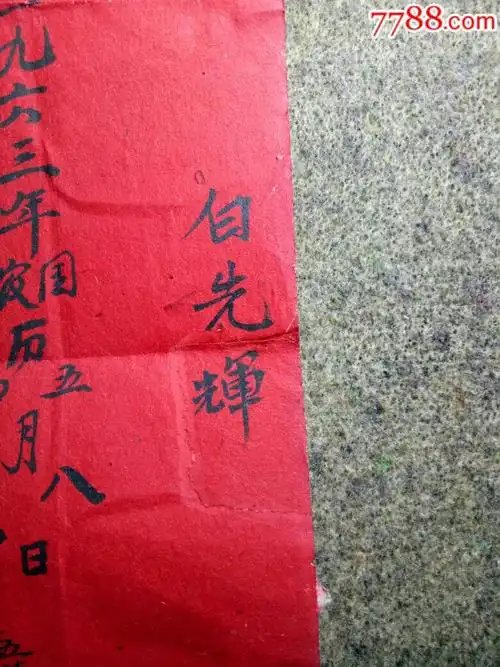 7788.com
白先輝
九六三年国历五月八日